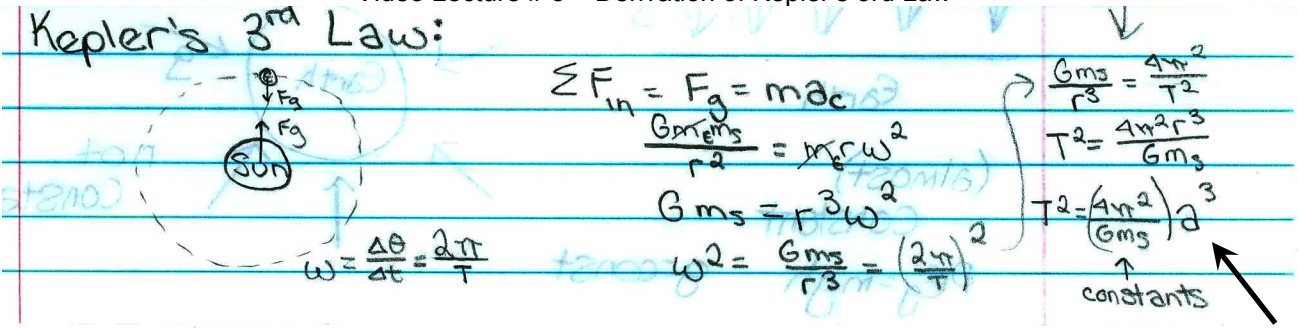 Kepler's 3rd Law:
Fg
Fg
Sun
ω = Δθ/Δt = 2π/T
ΣF_in = Fg = ma_c
Gm_em_s/r² = m_erω²
Gm_s = r³ω²
ω² = Gm_s/r³ = (2π/T)²
Gm_s/r³ = 4π²/T²
T² = 4π²r³/Gm_s
T² = (4π²/Gm_s)a³
constants